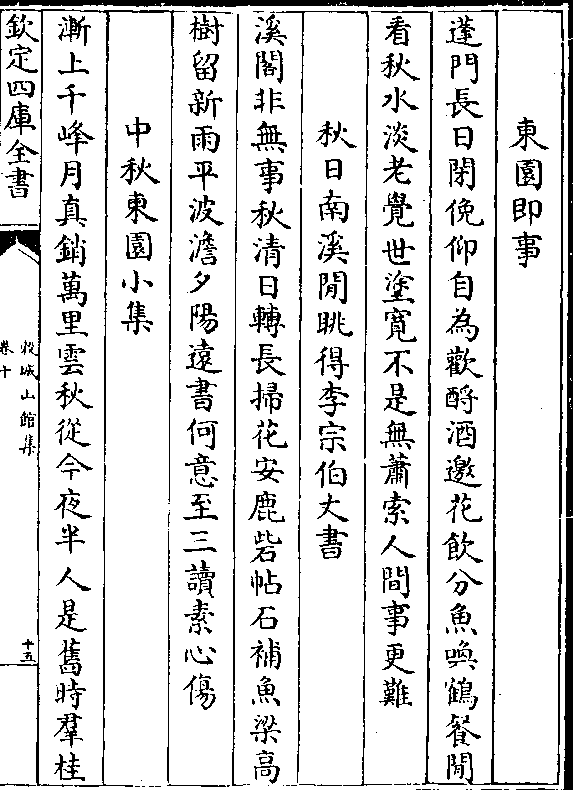 東園即事
蓬門長日閑俛仰自為歡酹酒邀花飲分魚喚鶴餐閒
看秋水淡老覺世塗寛不是無蕭索人間事更難
秋日南溪閒眺得李宗伯丈書
溪閣非無事秋清日轉長掃花安鹿砦帖石補魚梁高
樹留新雨平波澹夕陽遠書何意至三讀素心傷
中秋東園小集
漸上千峰月真銷萬里雲秋從今夜半人是舊時羣桂
欽定四庫全書
牧城山館集
卷十
十五